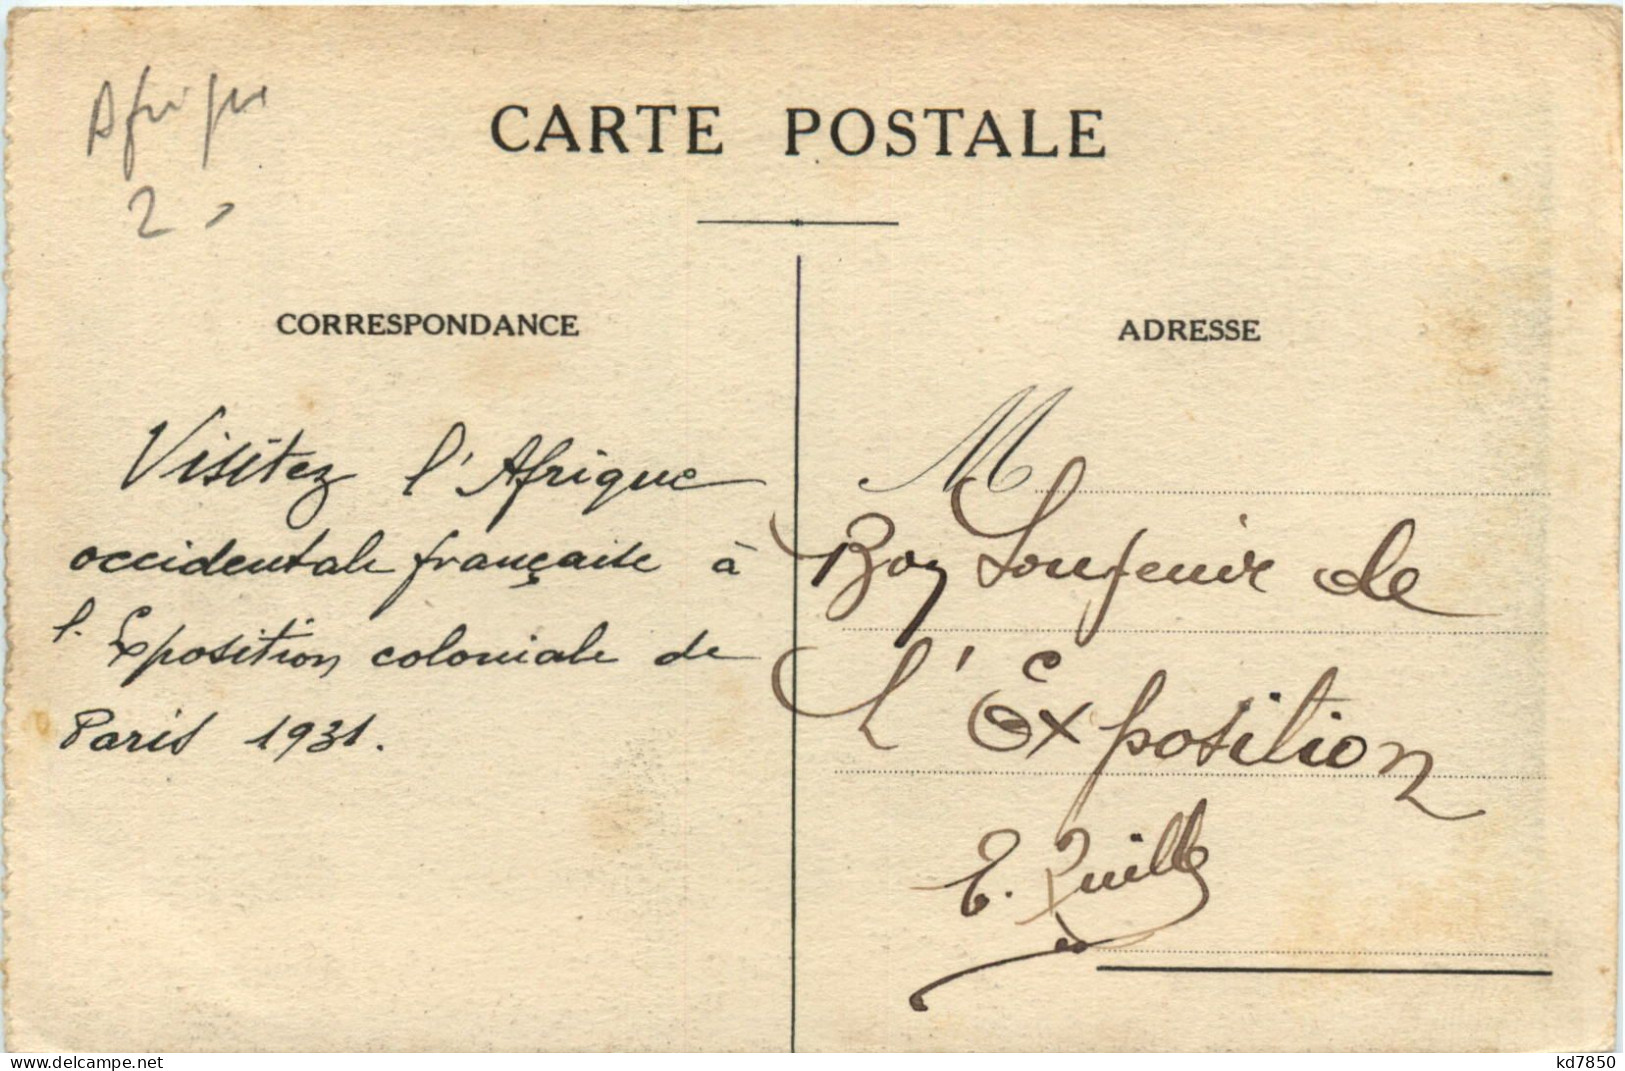 Afrique
2
CARTE POSTALE
CORRESPONDANCE
Visitez l'Afrique
occidentale française à
l'Exposition coloniale de
Paris 1931.
ADRESSE
M
Bon Souvenir de
L'Exposition
E. Quille
www.delcampe.net
kd7850